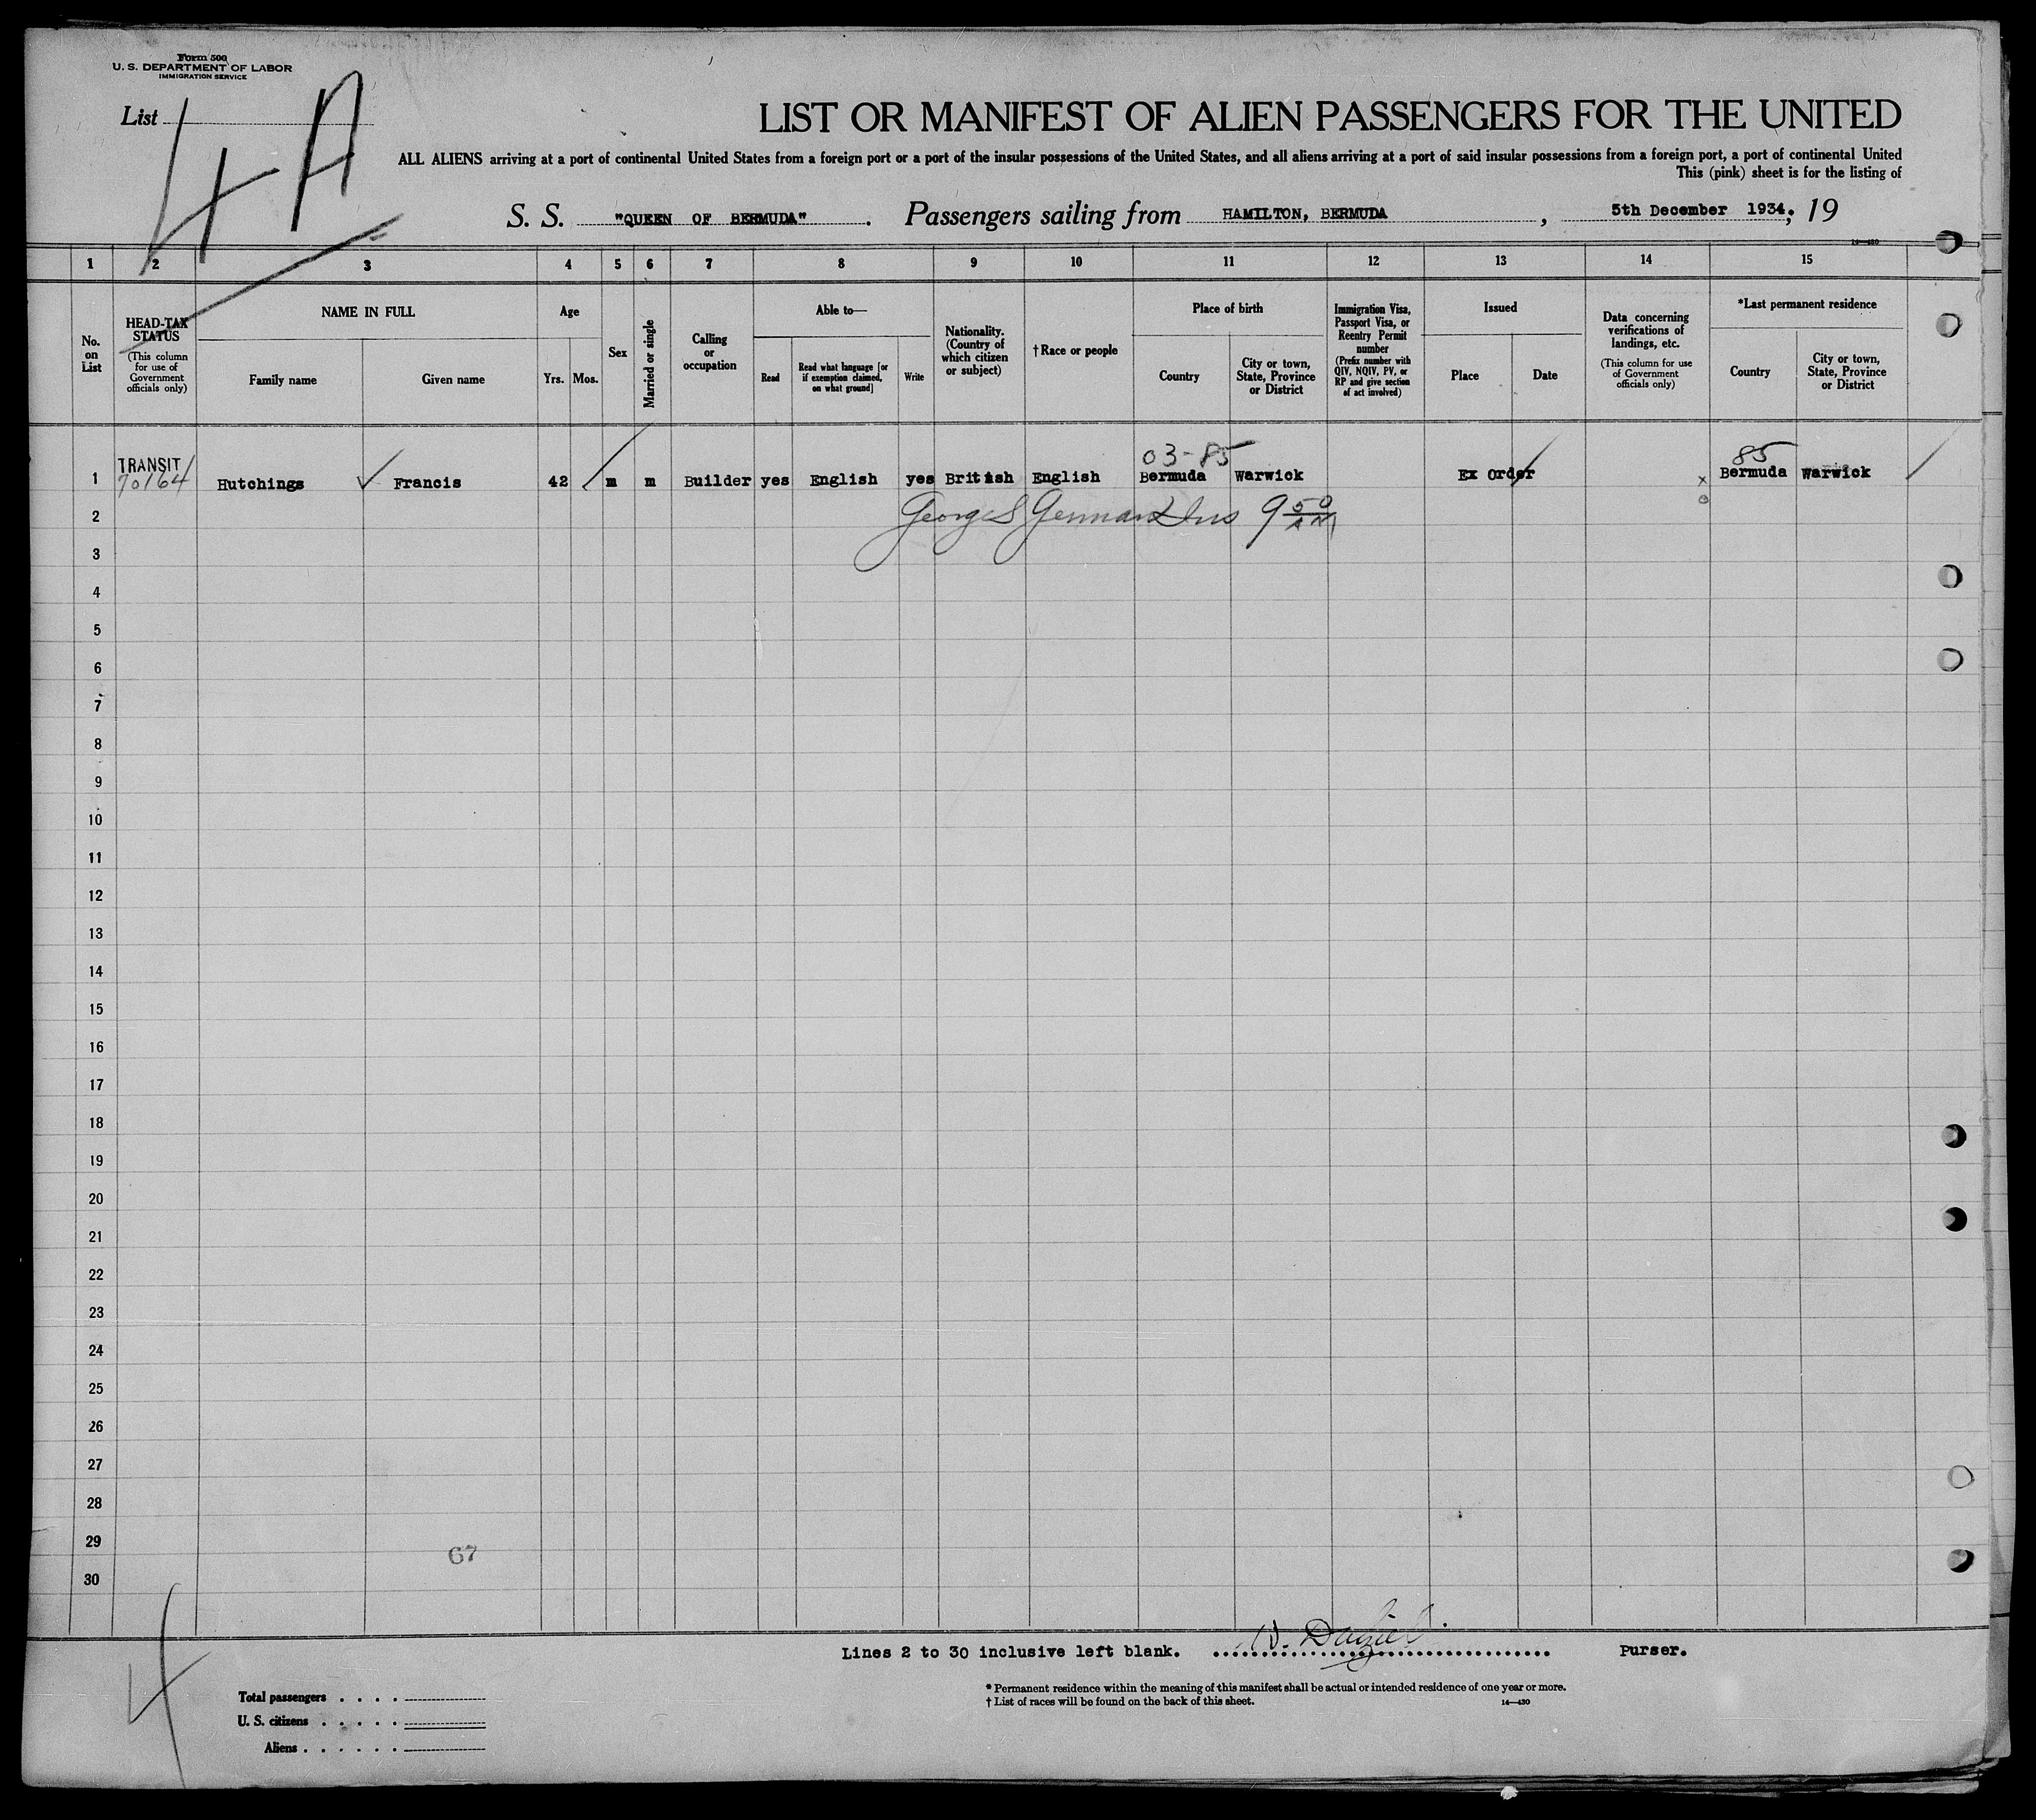 Form 500
U. S. DEPARTMENT OF LABOR
IMMIGRATION SERVICE
List 4A
LIST OR MANIFEST OF ALIEN PASSENGERS FOR THE UNITED
ALL ALIENS arriving at a port of continental United States from a foreign port or a port of the insular possessions of the United States, and all aliens arriving at a port of said insular possessions from a foreign port, a port of continental United
This (pink) sheet is for the listing of
S. S. "QUEEN OF BERMUDA". Passengers sailing from HAMILTON, BERMUDA, 5th December 1934, 19
14—430
1 2 3 4 5 6 7 8 9 10 11 12 13 14 15
No. on List
HEAD-TAX STATUS (This column for use of Government officials only)
NAME IN FULL
Family name
Given name
Age
Yrs. Mos.
Sex
Married or single
Calling or occupation
Able to—
Read
Read what language [or if exemption claimed, on what ground]
Write
Nationality. (Country of which citizen or subject)
†Race or people
Place of birth
Country
City or town, State, Province or District
Immigration Visa, Passport Visa, or Reentry Permit number (Prefix number with QIV, NQIV, PV, or RP and give section of act involved)
Issued
Place
Date
Data concerning verifications of landings, etc. (This column for use of Government officials only)
*Last permanent residence
Country
City or town, State, Province or District
03-85 85
1 TRANSIT 70164 Hutchings Francis 42 m m Builder yes English yes British English Bermuda Warwick Ex Order x Bermuda Warwick
2 George S German Ins 9 50 AM
3
4
5
6
7
8
9
10
11
12
13
14
15
16
17
18
19
20
21
22
23
24
25
26
27
28
29
67
30
Lines 2 to 30 inclusive left blank. Purser.
Total passengers
U. S. citizens
Aliens
* Permanent residence within the meaning of this manifest shall be actual or intended residence of one year or more.
† List of races will be found on the back of this sheet. 14—430